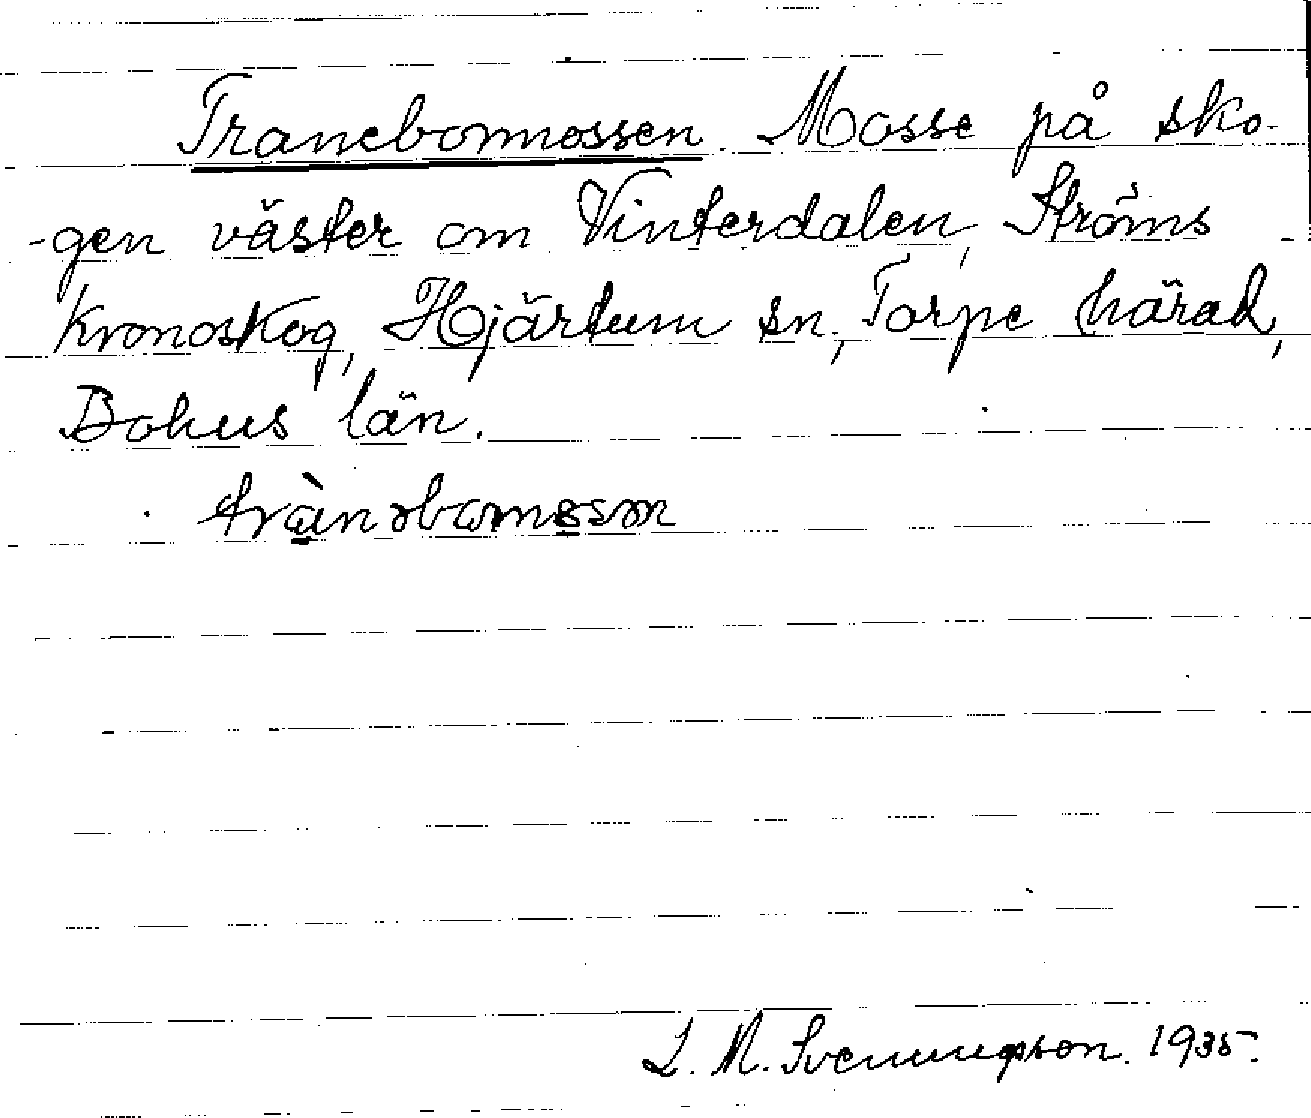 Tranebomossen. Mosse på sko-
-gen väster om Vinterdalen, Ströms
Kronoskog, Hjärtum sn, Torpe härad,
Bohus län.
trànəbomessən
L. M. Svenungson. 1935.